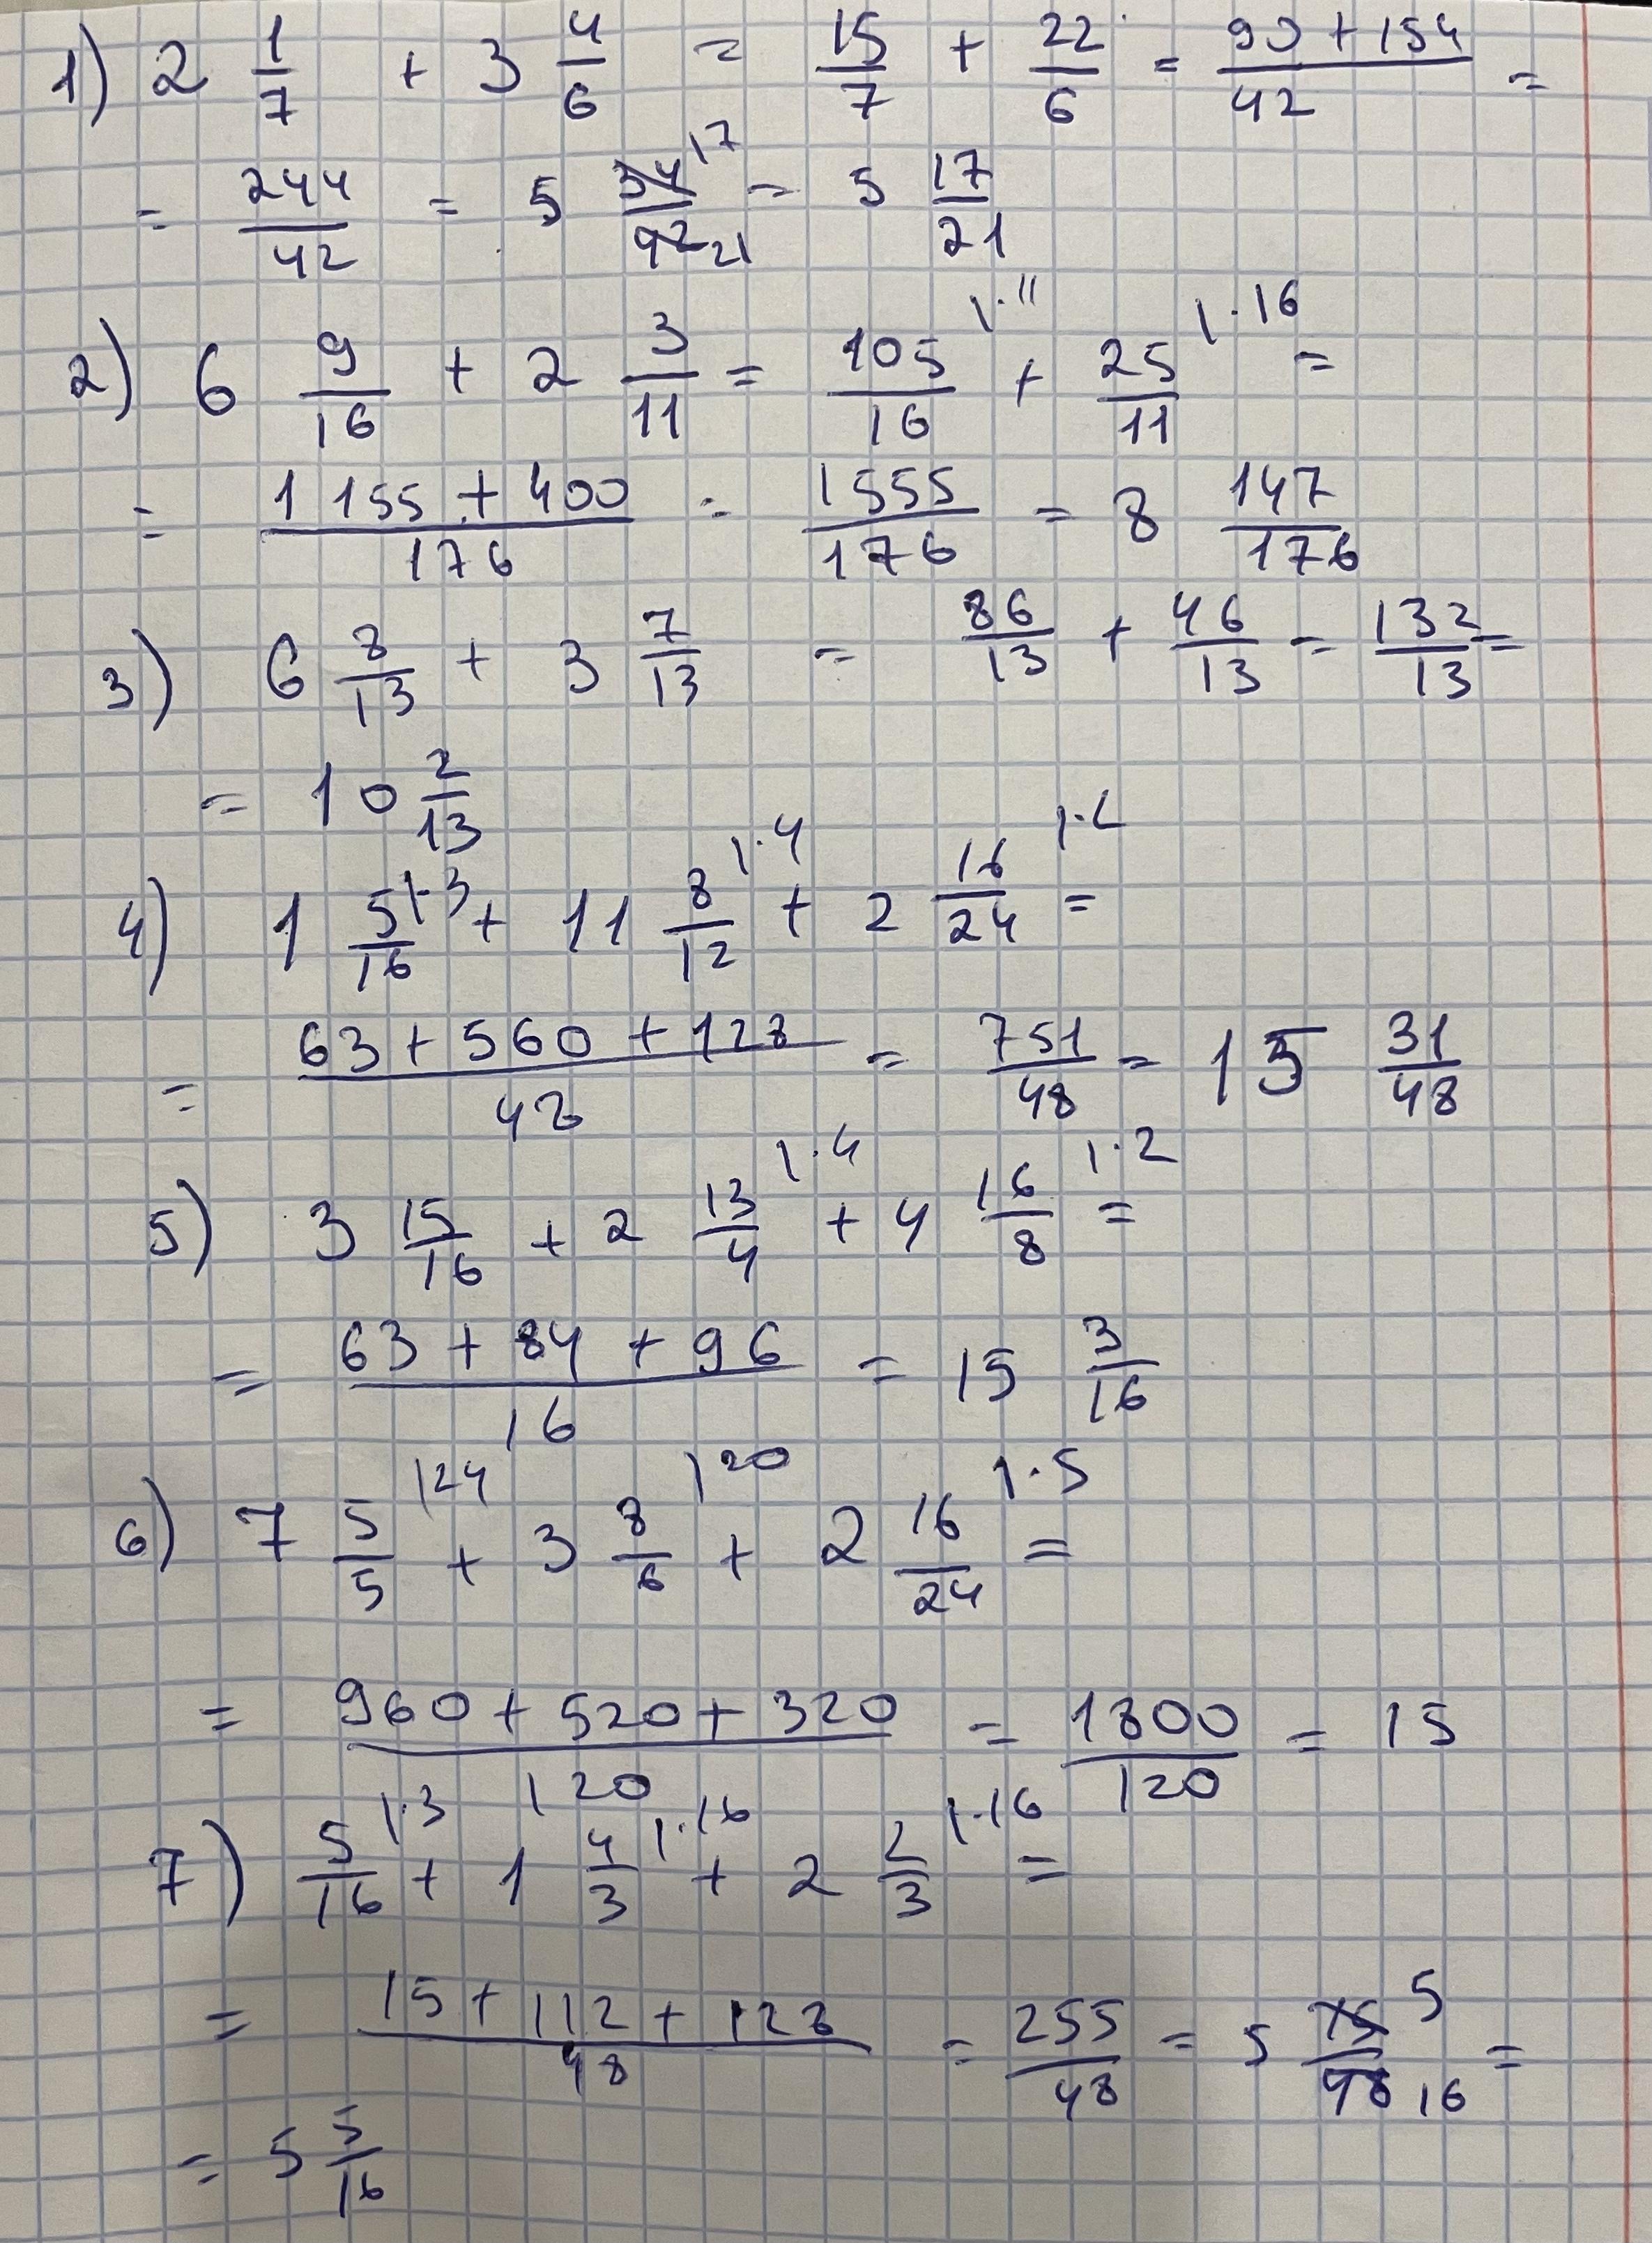 1) 2 1/7 + 3 4/6 = 15/7 + 22/6 = (90 + 154)/42 =
= 244/42 = 5 34/42 17 21 = 5 17/21
2) 6 9/16 + 2 3/11 = 105/16 |·11 + 25/11 |·16 =
= (1155 + 400)/176 = 1555/176 = 8 147/176
3) 6 8/13 + 3 7/13 = 86/13 + 46/13 = 132/13 =
= 10 2/13
4) 1 5/16 |·3 + 11 8/12 |·4 + 2 16/24 |·2 =
= (63 + 560 + 128)/48 = 751/48 = 15 31/48
5) 3 15/16 + 2 13/4 |·4 + 4 16/8 |·2 =
= (63 + 84 + 96)/16 = 15 3/16
6) 7 5/5 |24 + 3 8/6 |20 + 2 16/24 |·5 =
= (960 + 520 + 320)/120 = 1800/120 = 15
7) 5/16 |·3 + 1 4/3 |·16 + 2 2/3 |·16 =
= (15 + 112 + 128)/48 = 255/48 = 5 15/48 5 16 =
= 5 5/16